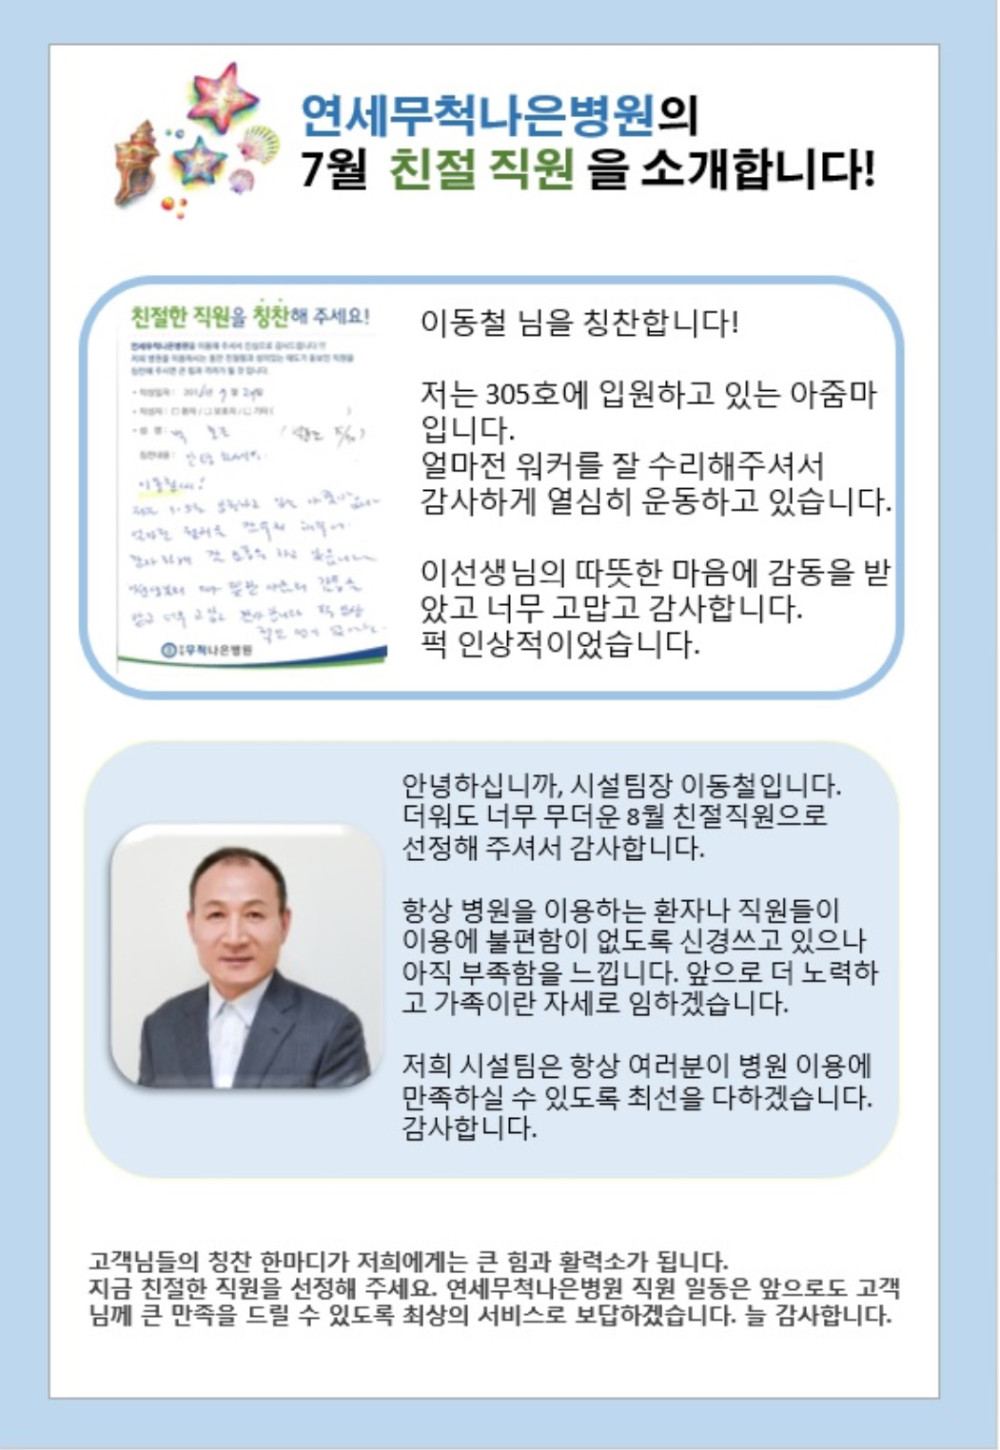 연세무척나은병원의
7월 친절 직원 을 소개합니다!
친절한 직원을 칭찬해 주세요!
이동철 님을 칭찬합니다!
저는 305호에 입원하고 있는 아줌마
입니다.
얼마전 워커를 잘 수리해주셔서
감사하게 열심히 운동하고 있습니다.
이선생님의 따뜻한 마음에 감동을 받
았고 너무 고맙고 감사합니다.
퍽 인상적이었습니다.
무척나은병원
안녕하십니까, 시설팀장 이동철입니다.
더워도 너무 무더운 8월 친절직원으로
선정해 주셔서 감사합니다.
항상 병원을 이용하는 환자나 직원들이
이용에 불편함이 없도록 신경쓰고 있으나
아직 부족함을 느낍니다. 앞으로 더 노력하
고 가족이란 자세로 임하겠습니다.
저희 시설팀은 항상 여러분이 병원 이용에
만족하실 수 있도록 최선을 다하겠습니다.
감사합니다.
고객님들의 칭찬 한마디가 저희에게는 큰 힘과 활력소가 됩니다.
지금 친절한 직원을 선정해 주세요. 연세무척나은병원 직원 일동은 앞으로도 고객
님께 큰 만족을 드릴 수 있도록 최상의 서비스로 보답하겠습니다. 늘 감사합니다.